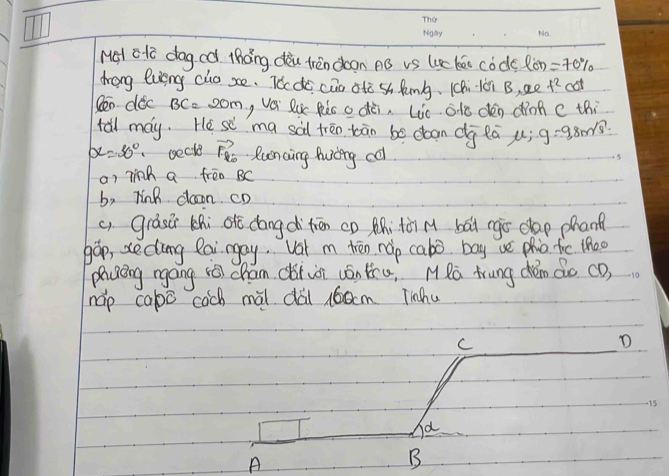 Thứ
Ngày
No.
Một ô tô đag cđ thẳng đều trên đoạn AB vs lực kéo có độ lớn = 70%
trọng lượng của xe. Tốc độ của ôtô 54 km/h. Khi tới B, xe t² cđ
lên dốc BC = 20m, với lực kéo o đổi. Lúc ôtô đến đỉnh C thì
tắt máy. Hệ số ma sát trên toàn bộ đoạn đg là μ; g=9,8m/s².
α=30°. vectơ Fkéo luôn cùng hướng cđ
a, Tính a trên BC
b, Tính đoạn CD
c, Giả sử khi ôtô đang đi trên CD khi tới M bất ngờ đạp phanh
gấp, xe dừng lại ngay. Vật m trên nắp capô bay về phía trc theo
phương ngang rồi chạm đất với vận tốc u, M là trung điểm của CD,
nắp capô cách mặt đất 160cm Tính u
5
10
15
C
D
α
A
B